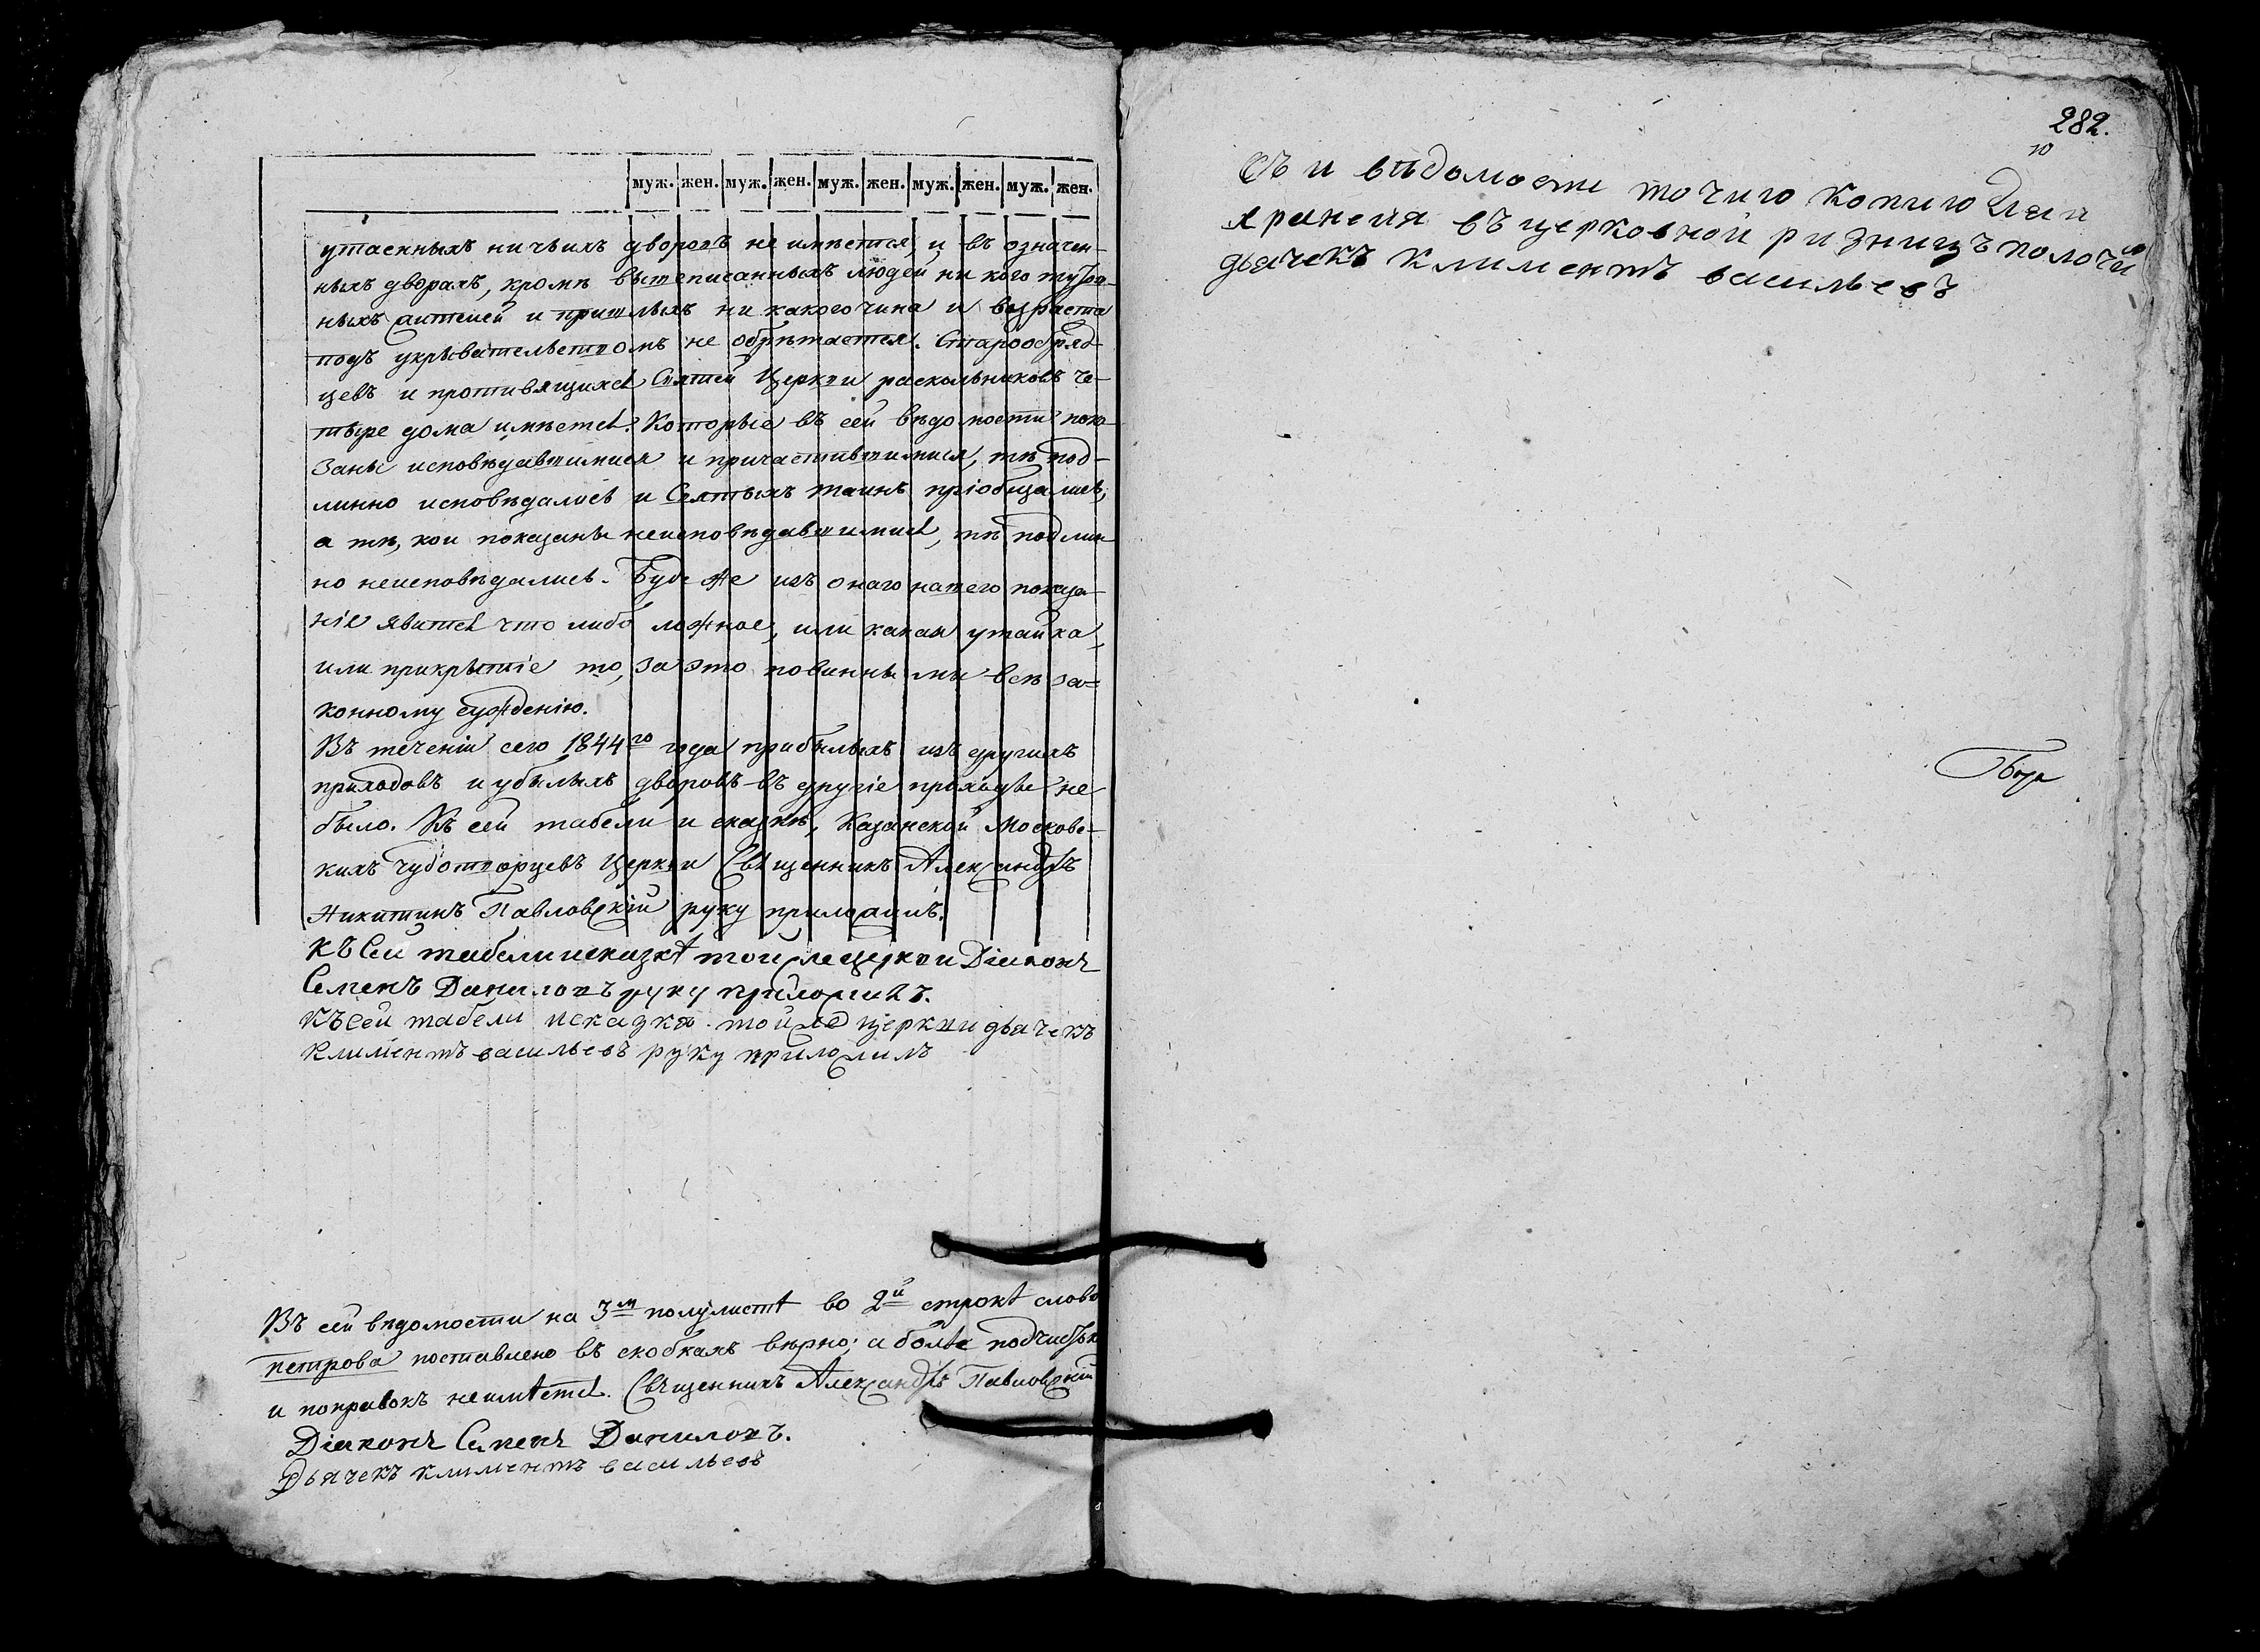 муж. жен. муж. жен. муж. жен. муж. жен. муж. жен.
утаенныхъ ничьихъ дворовъ не имѣется, и въ означен-
ныхъ дворахъ, кромѣ вышеписанныхъ людей ни кого
ныхъ и пришлыхъ ни какого чина и возраста
подъ укрывательствомъ не обрѣтается. Старообряд-
цевъ и противящихся Святей Церкви раскольниковъ че-
тыре дома имѣется. Которые въ сей вѣдомости пока-
заны исповѣдавшимися и причастившимися, тѣ под-
линно исповѣдались и Святыхъ таинъ пріобщались,
а тѣ, кои показаны неисповѣдавшимися, тѣ подлин-
но неисповѣдались. Буде же изъ онаго нашего показа-
нія явится что либо ложное, или какая утайка,
или прикрытіе то, за это повинны мы всѣ за-
конному сужденію.
Въ теченіи сего 1844го года прибылыхъ изъ другихъ
приходовъ и убылыхъ дворовъ въ другіе приходы не
было. Къ сей табели и сказкѣ, Казанской Московс-
кихъ чудотворцевъ Церкви Священникъ Александръ
Никитинъ Павловскій руку приложилъ.
Къ сей табели и сказкѣ той же церкви Діаконъ
Семенъ Даниловъ руку приложилъ.
Къ сей табели и сказкѣ той же церкви дьячекъ
Климентъ васильевъ руку приложилъ
Въ сей вѣдомости на 3м полулистѣ во 2й строкѣ слово
петрова поставлено въ скобкахъ вѣрно; а болѣе подчистокъ
и поправокъ неимѣется. Священникъ Александръ Павловскій
Діаконъ Семенъ Даниловъ.
Дьячекъ климентъ васильевъ
282.
Съ и вѣдомости точную копию для
хранения въ церковной ризницѣ получи
дьячекъ климентъ васильевъ